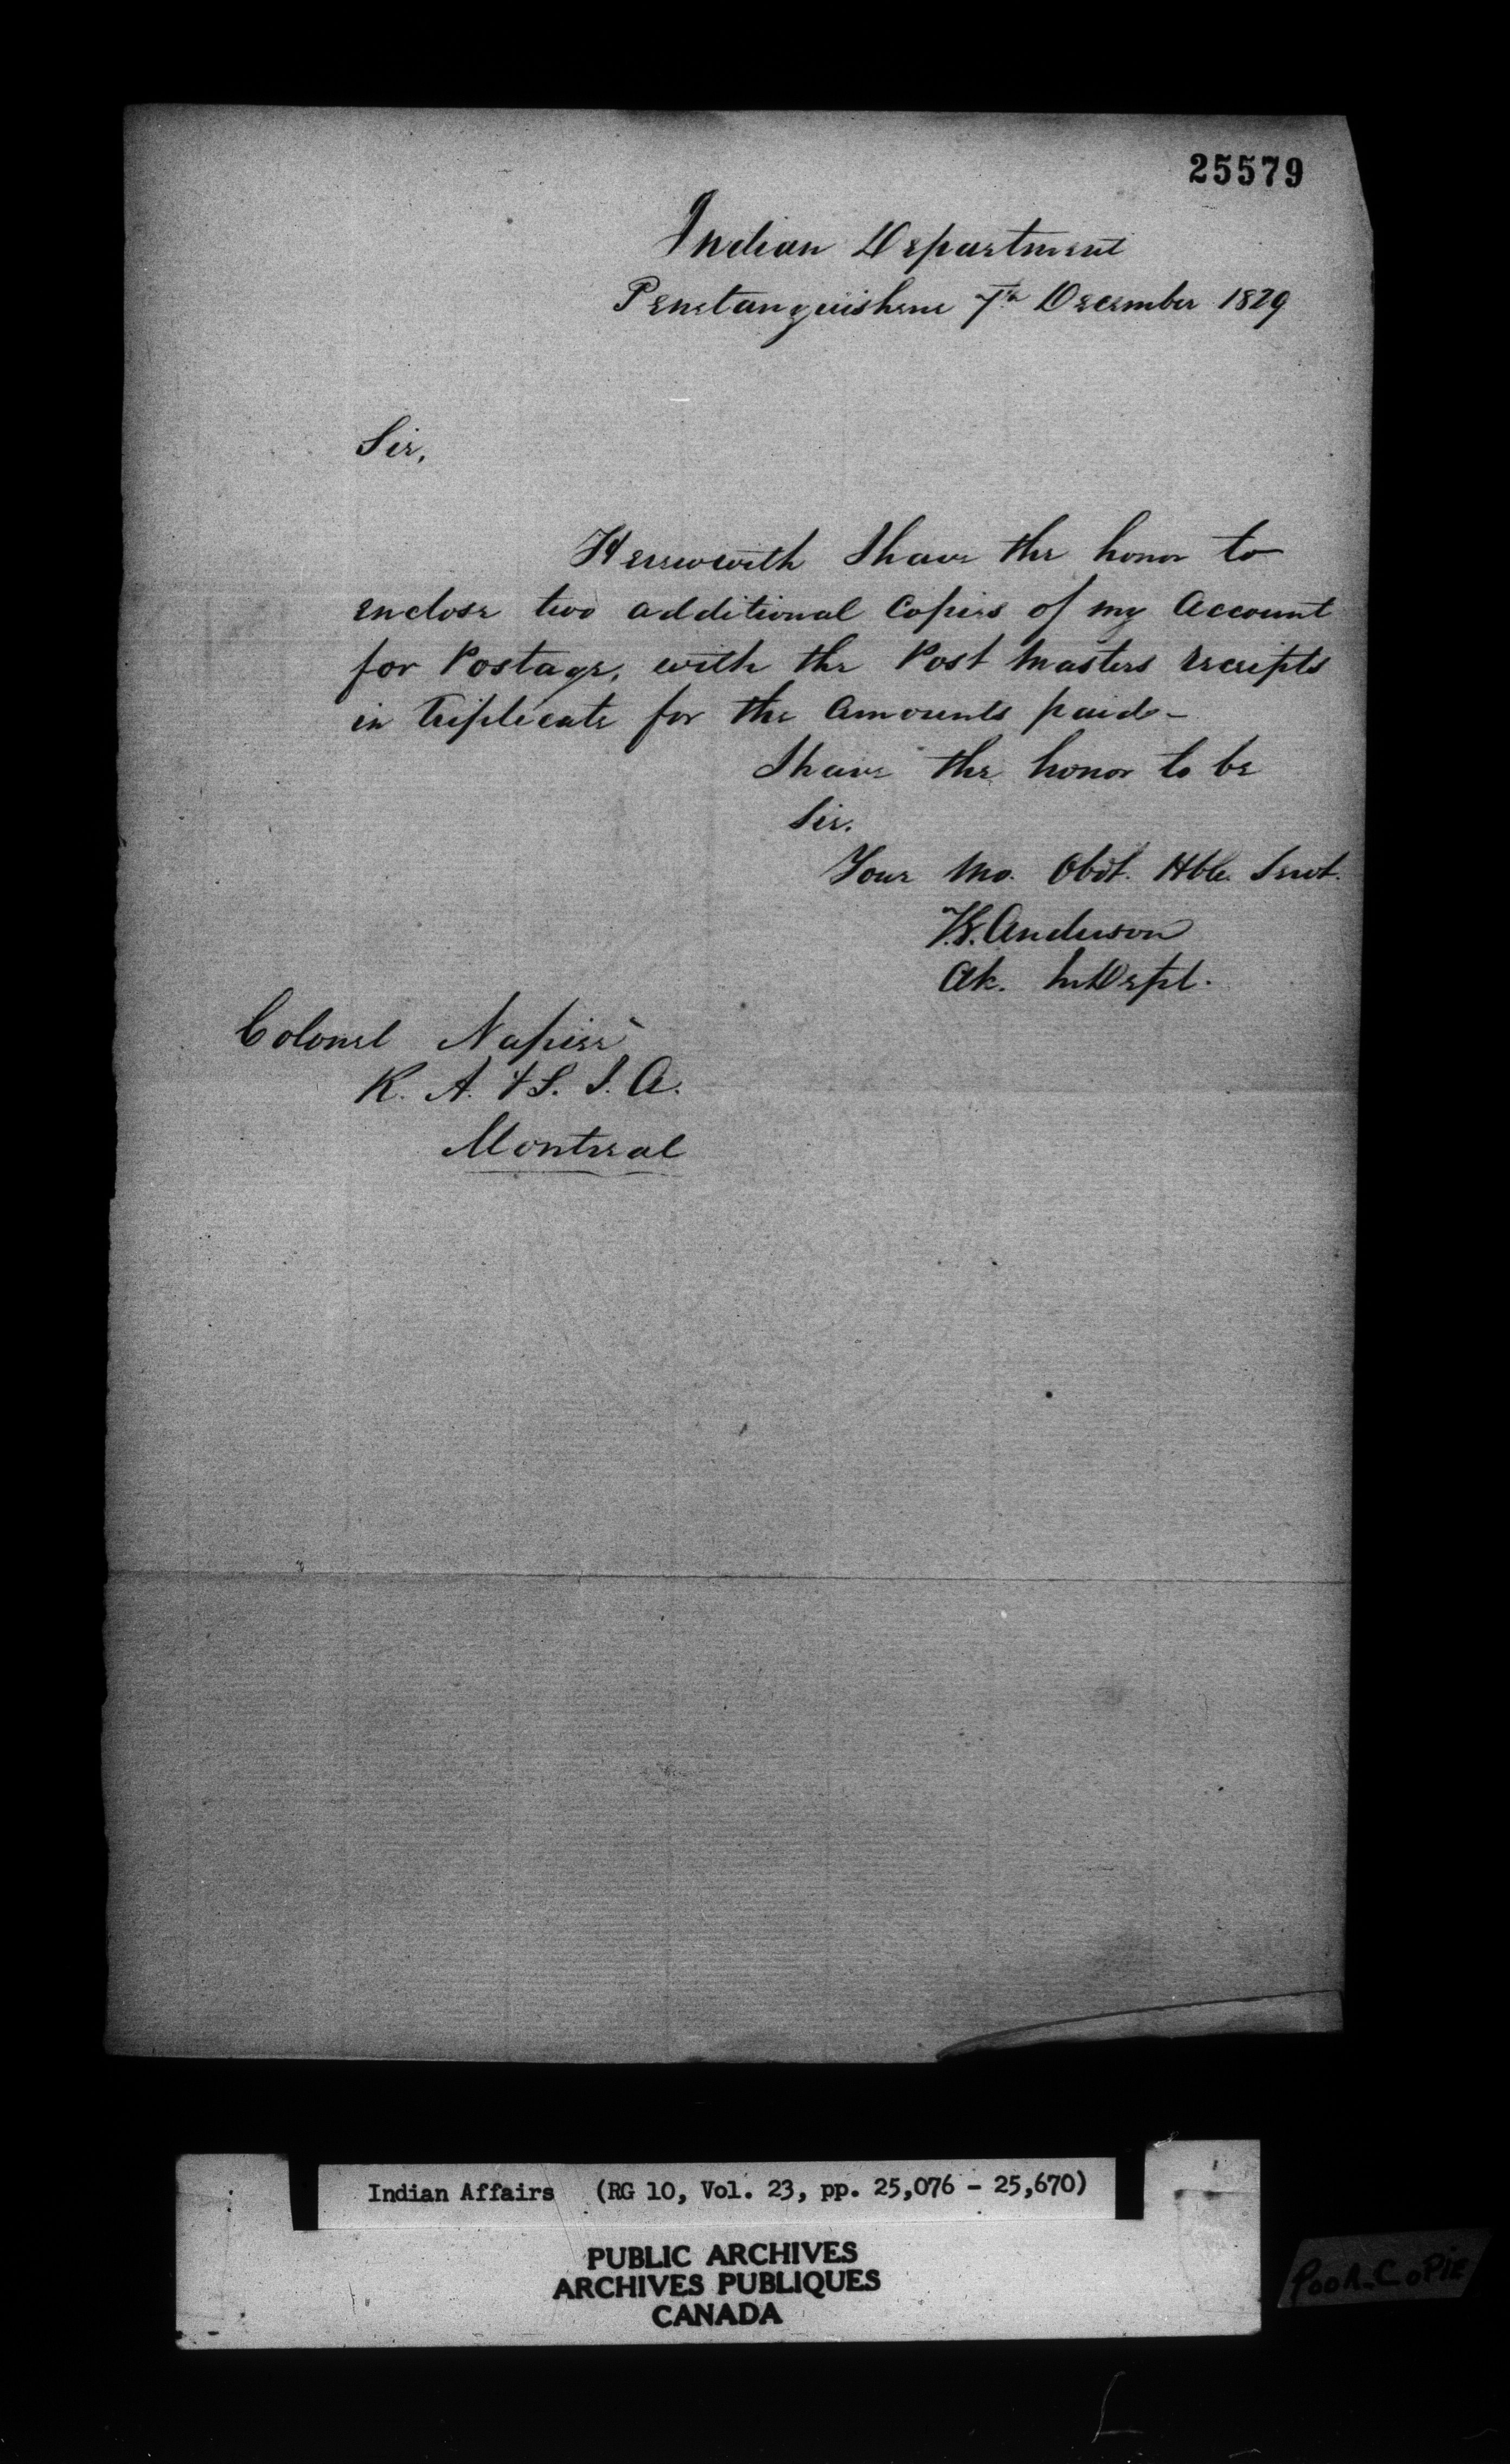 25579
Indian Department
Penetanguishene 7th December 1829
Sir,
Herewith I have the honor to
enclose two additional Copies of my Account
for Postage, with the Post Masters receipts
in Triplicate for the Amounts paid-
I have the honor to be
Sir.
Your Mo. Obdt. Hble. Servt.
Anderson
In Dept.
Colonel Napier
R. A. & S. I. A.
Montreal
Indian Affairs (RG 10, Vol. 23, pp. 25,076 - 25,670)
PUBLIC ARCHIVES
ARCHIVES PUBLIQUES
CANADA
POOR COPIE